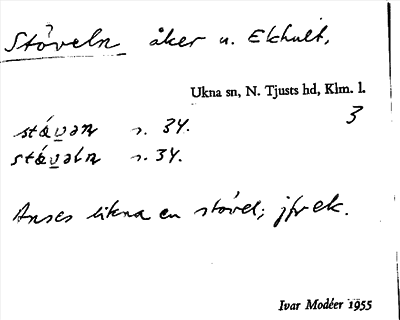 Stöveln åker u. Ekhult,
Ukna sn, N. Tjusts hd, Klm. l.
3
s. 34.
s. 34.
Anses likna en stövel; jfr ek.
Ivar Modéer 1955